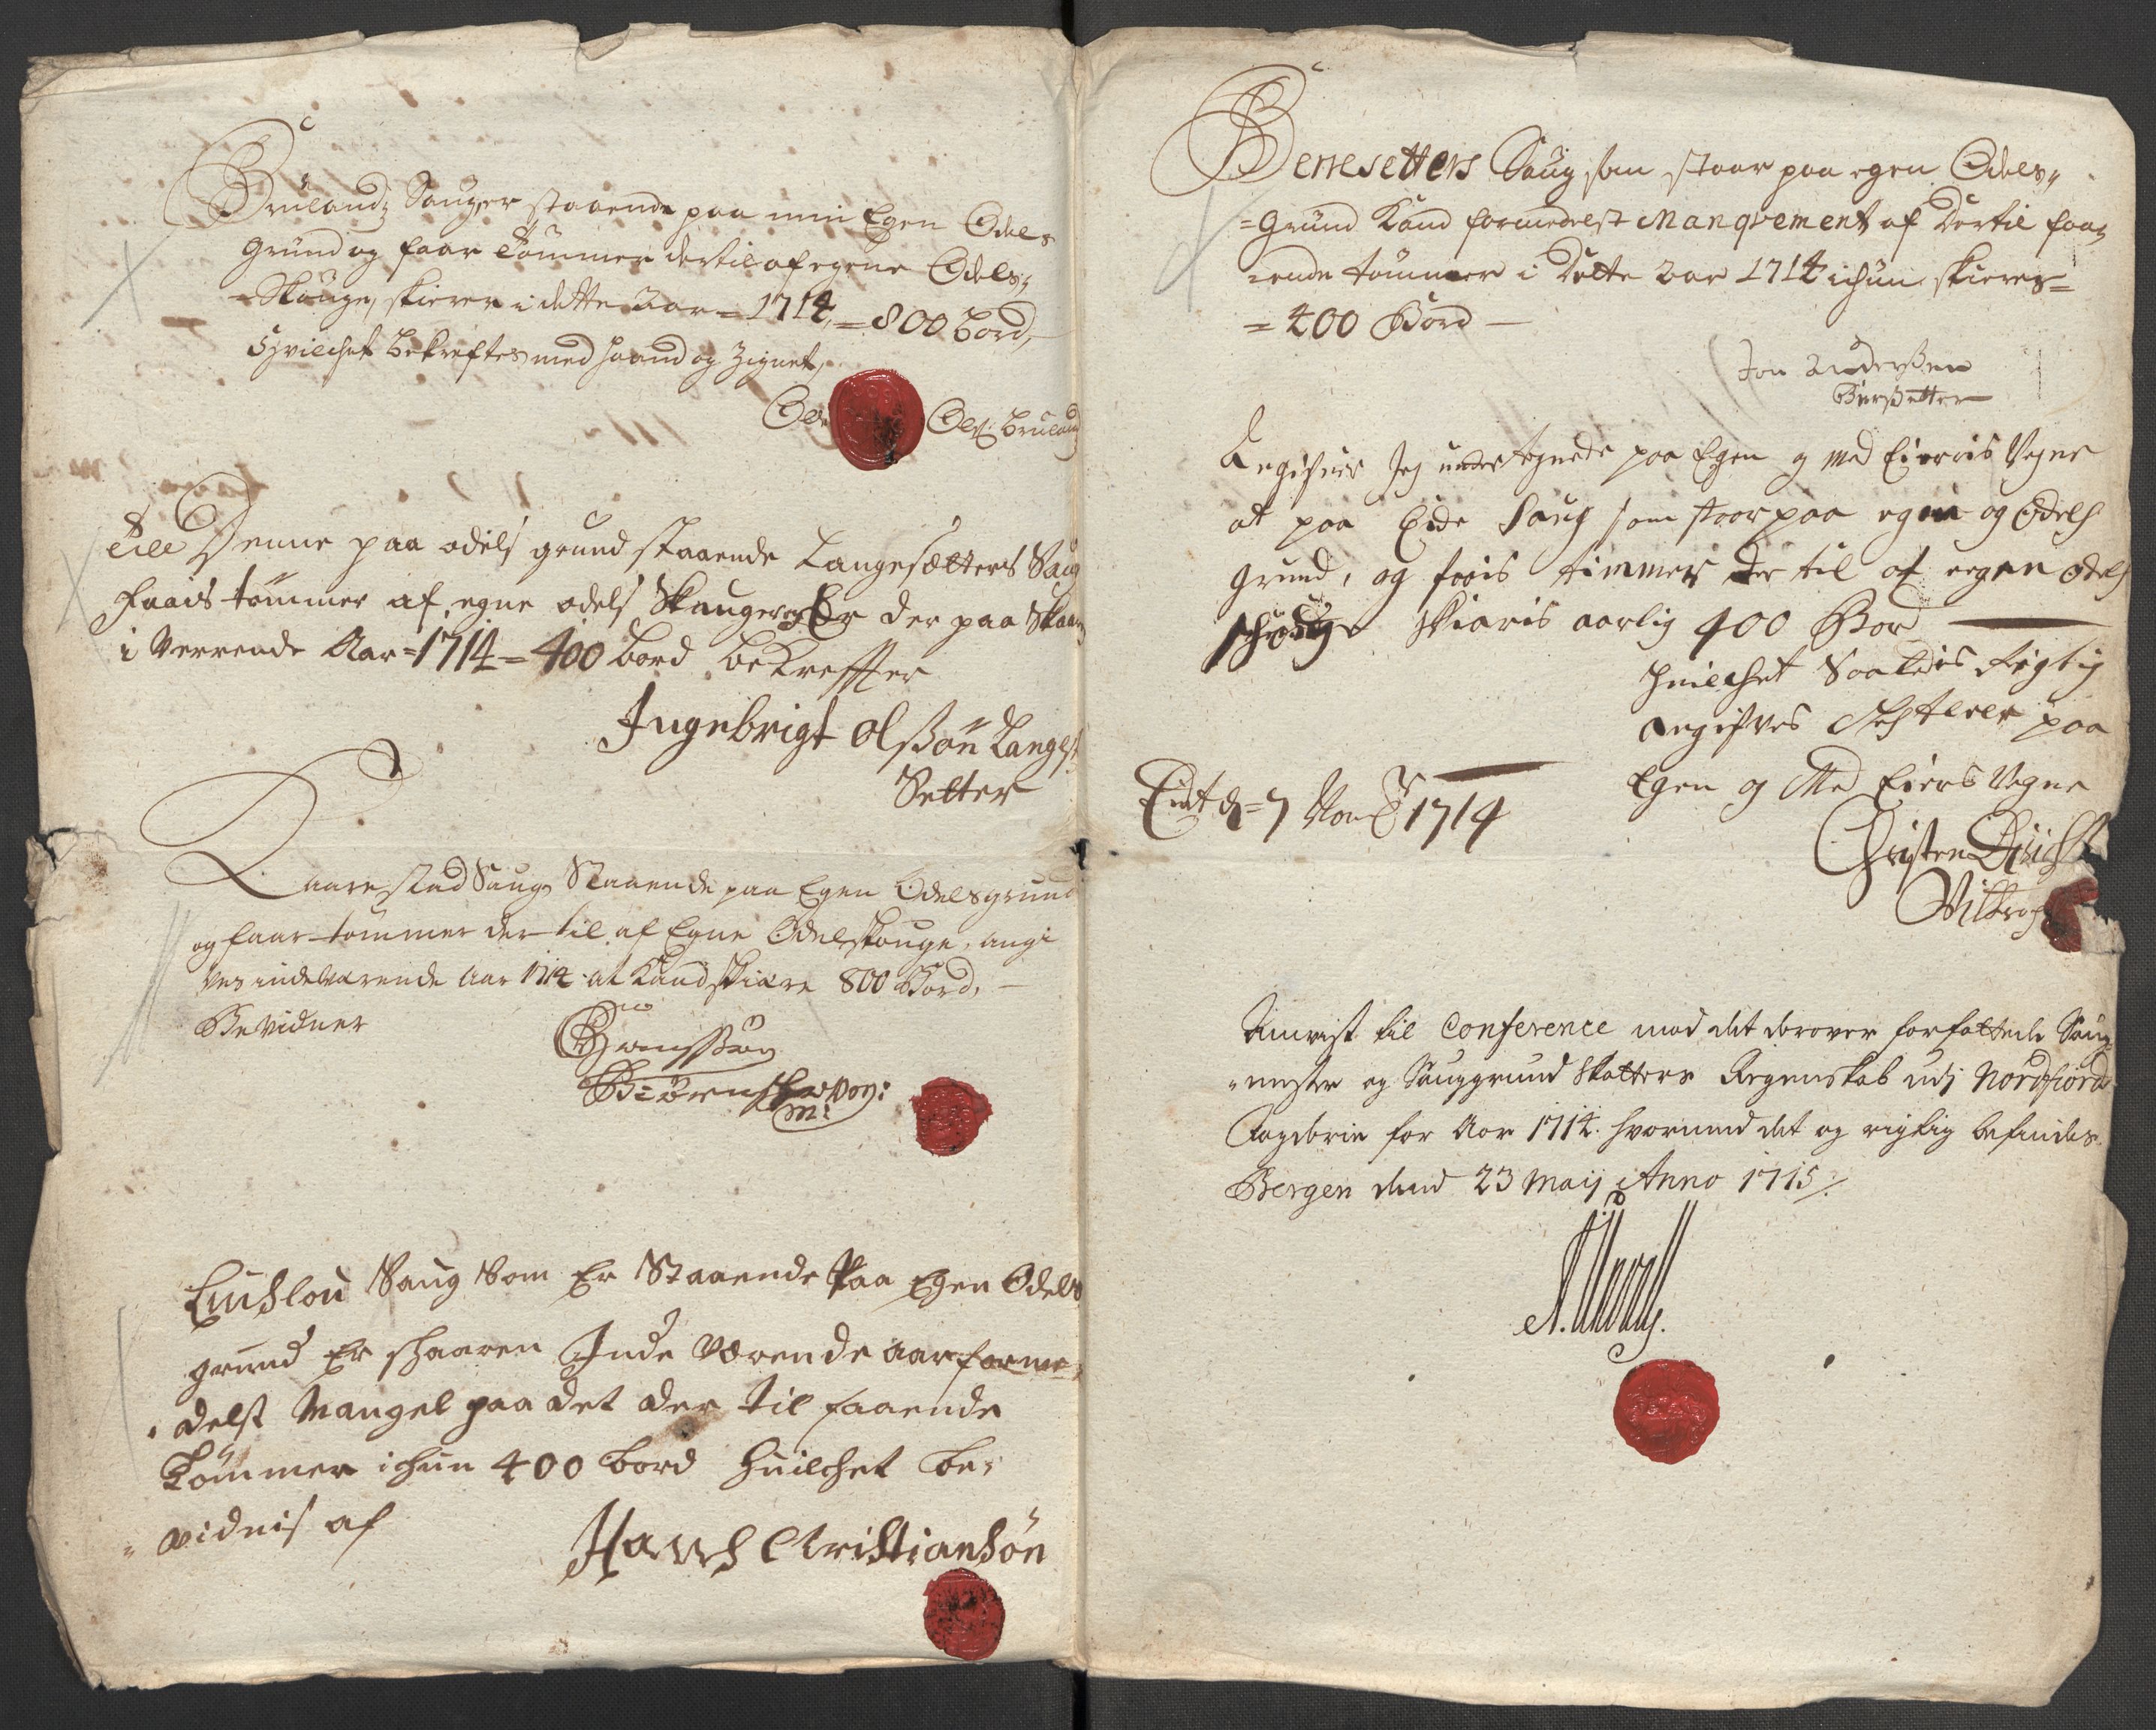 Bruland; Sauger staaende paa min Egen Odels
Grund og faar Tømmer dertil af egene Odels,,
=Skauge, skierer i dette Aar = 1714 = 800 bord,
Hvilchet bekreftes med haand og Zignet,
Ole Ols: Bruland
Till Denne paa odels grund staaende Langesætters Saug
faais tømmer af egne odels Skauger og Er der paa Skaar
i Verrende Aar = 1714 = 400 bord bekreffter
Ingebrigt olßøn Langes
Setter
Taarestad Saug Staaende paa Egen Odelsgrund
og faar tømmer der til af Egne Odelskouge, angi
ves indeværende Aar 1714 at Kand skiære 800 Bord,
Bevidner
Saug Som Er Staaende Paa Egen Odels
grund Er skaaren Inde Værende aar forme,
delst Mangel paa det der til faaende
Tømmer ichun 400 bord huilchet be,
vidnis af
Hans Christiansøn
Berresetters Saug som staar paa egen Odels,,
=Grund Kand formedelst Manqvement af Dertil faa,,
,,ende tømmer i Dette Aar 1714 ichun skieres=
=400 Bord
Jon Anderßen
Bierßetter
Angifver Jeg undertegnede paa Egen og Med Eieris Vegne
at paa Eide Saug som staar paa egen og Odels
grund, og faais timmer der til af eegen odels
schoug skiæris aarlig 400 Bord
huilchet Saaledis Rigtig
angifves paa
Egen og Med Eiers Vegne
Eidt d= 7 1714
Christen
Anvist til Conference med det derover forfattede Saug,,
,,mester og Sauggrund Skatters Regenskab udj Nordfiords
Fogderie for Aar 1714. hvormed det og rigtig befindes.
Bergen dend 23 Maij Anno 1715